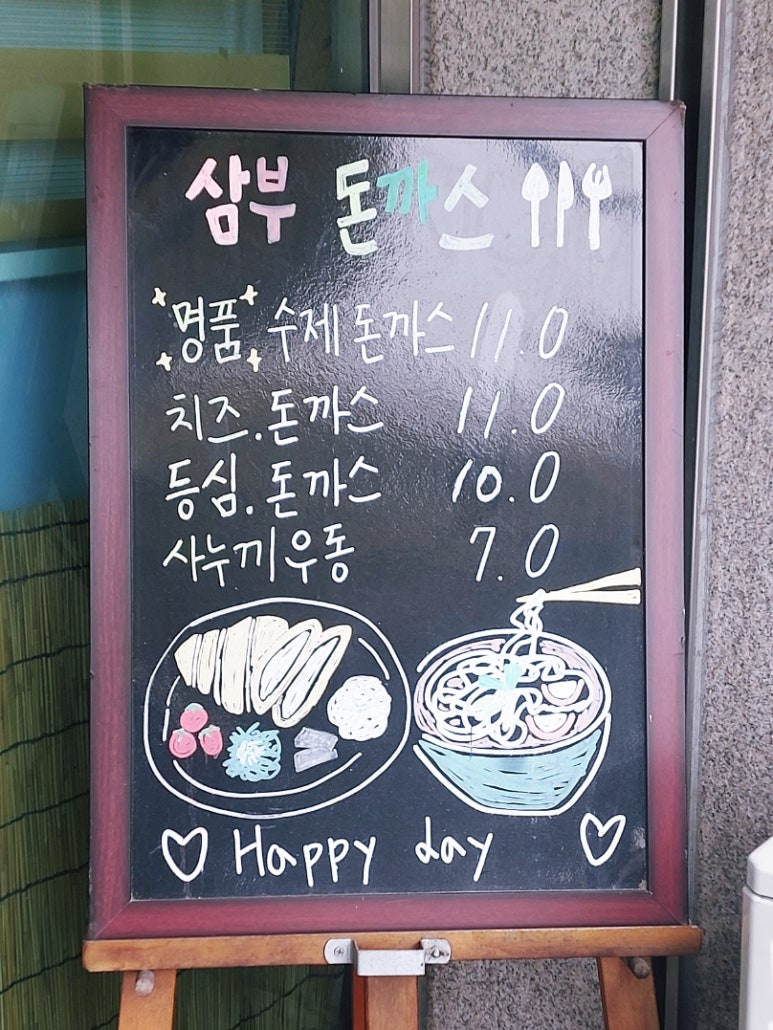 삼부 돈까스
명품 수제 돈까스 11.0
치즈.돈까스 11.0
등심.돈까스 10.0
사누끼우동 7.0
Happy day